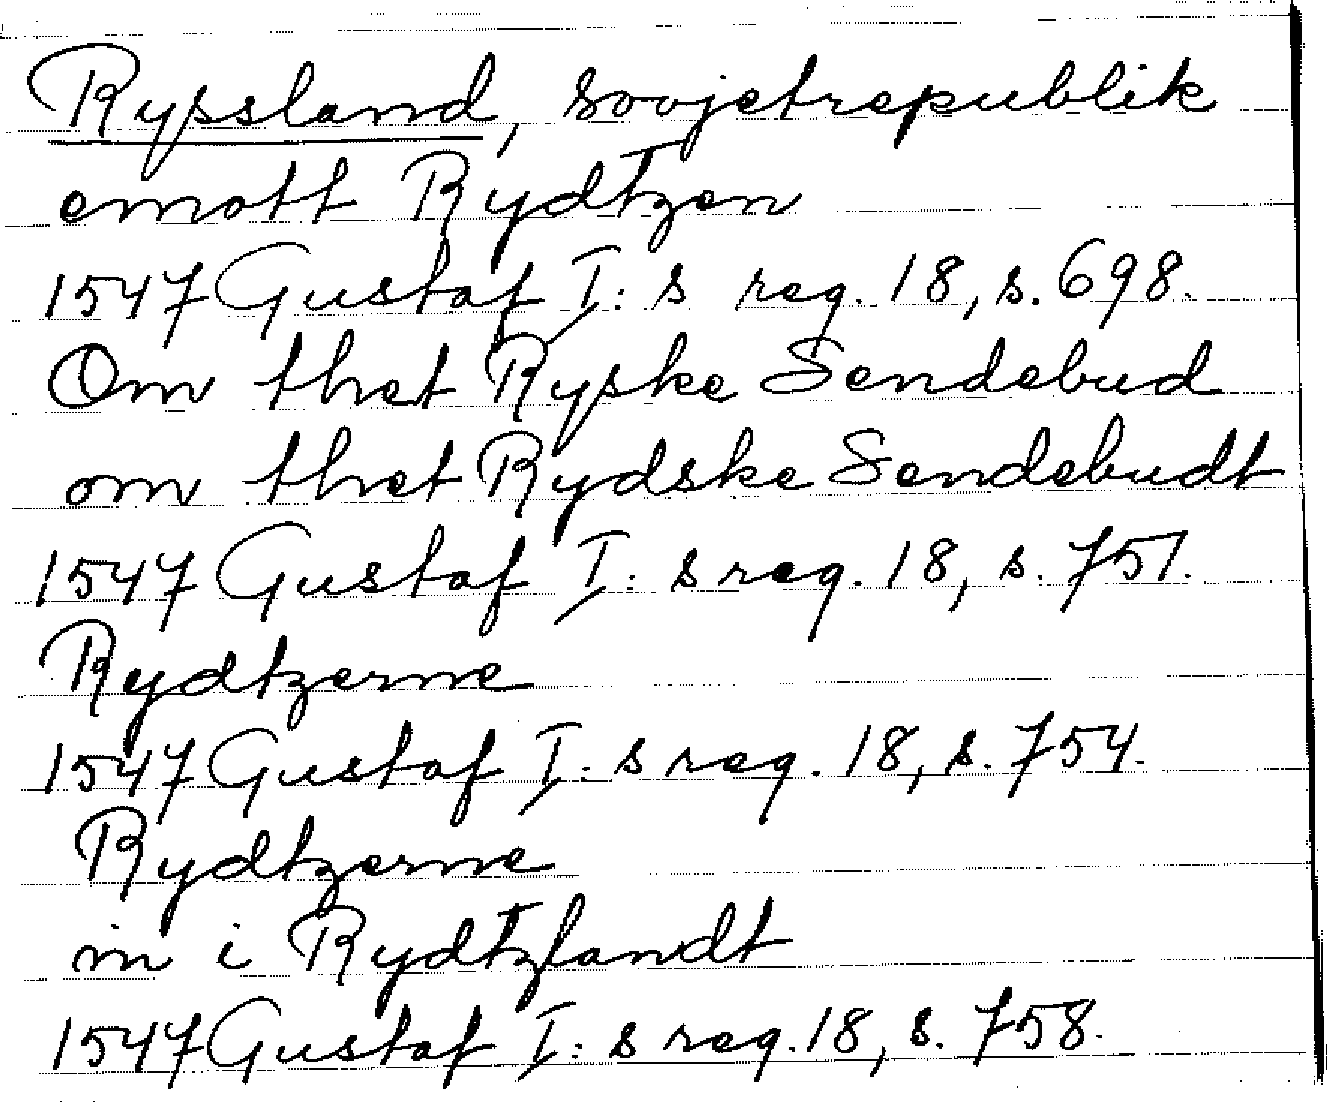 Ryssland, sovjetrepublik
emott Rydtzen
1547 Gustaf I:s reg. 18, s. 698.
Om thet Ryske Sendebud
om thet Rydske Sendebudt
1547 Gustaf I:s reg. 18, s. 751.
Rydtzerne
1547 Gustaf I:s reg. 18, s. 754.
Rydtzerne
in i Rydtzlandt
1547 Gustaf I:s reg. 18, s. 758.